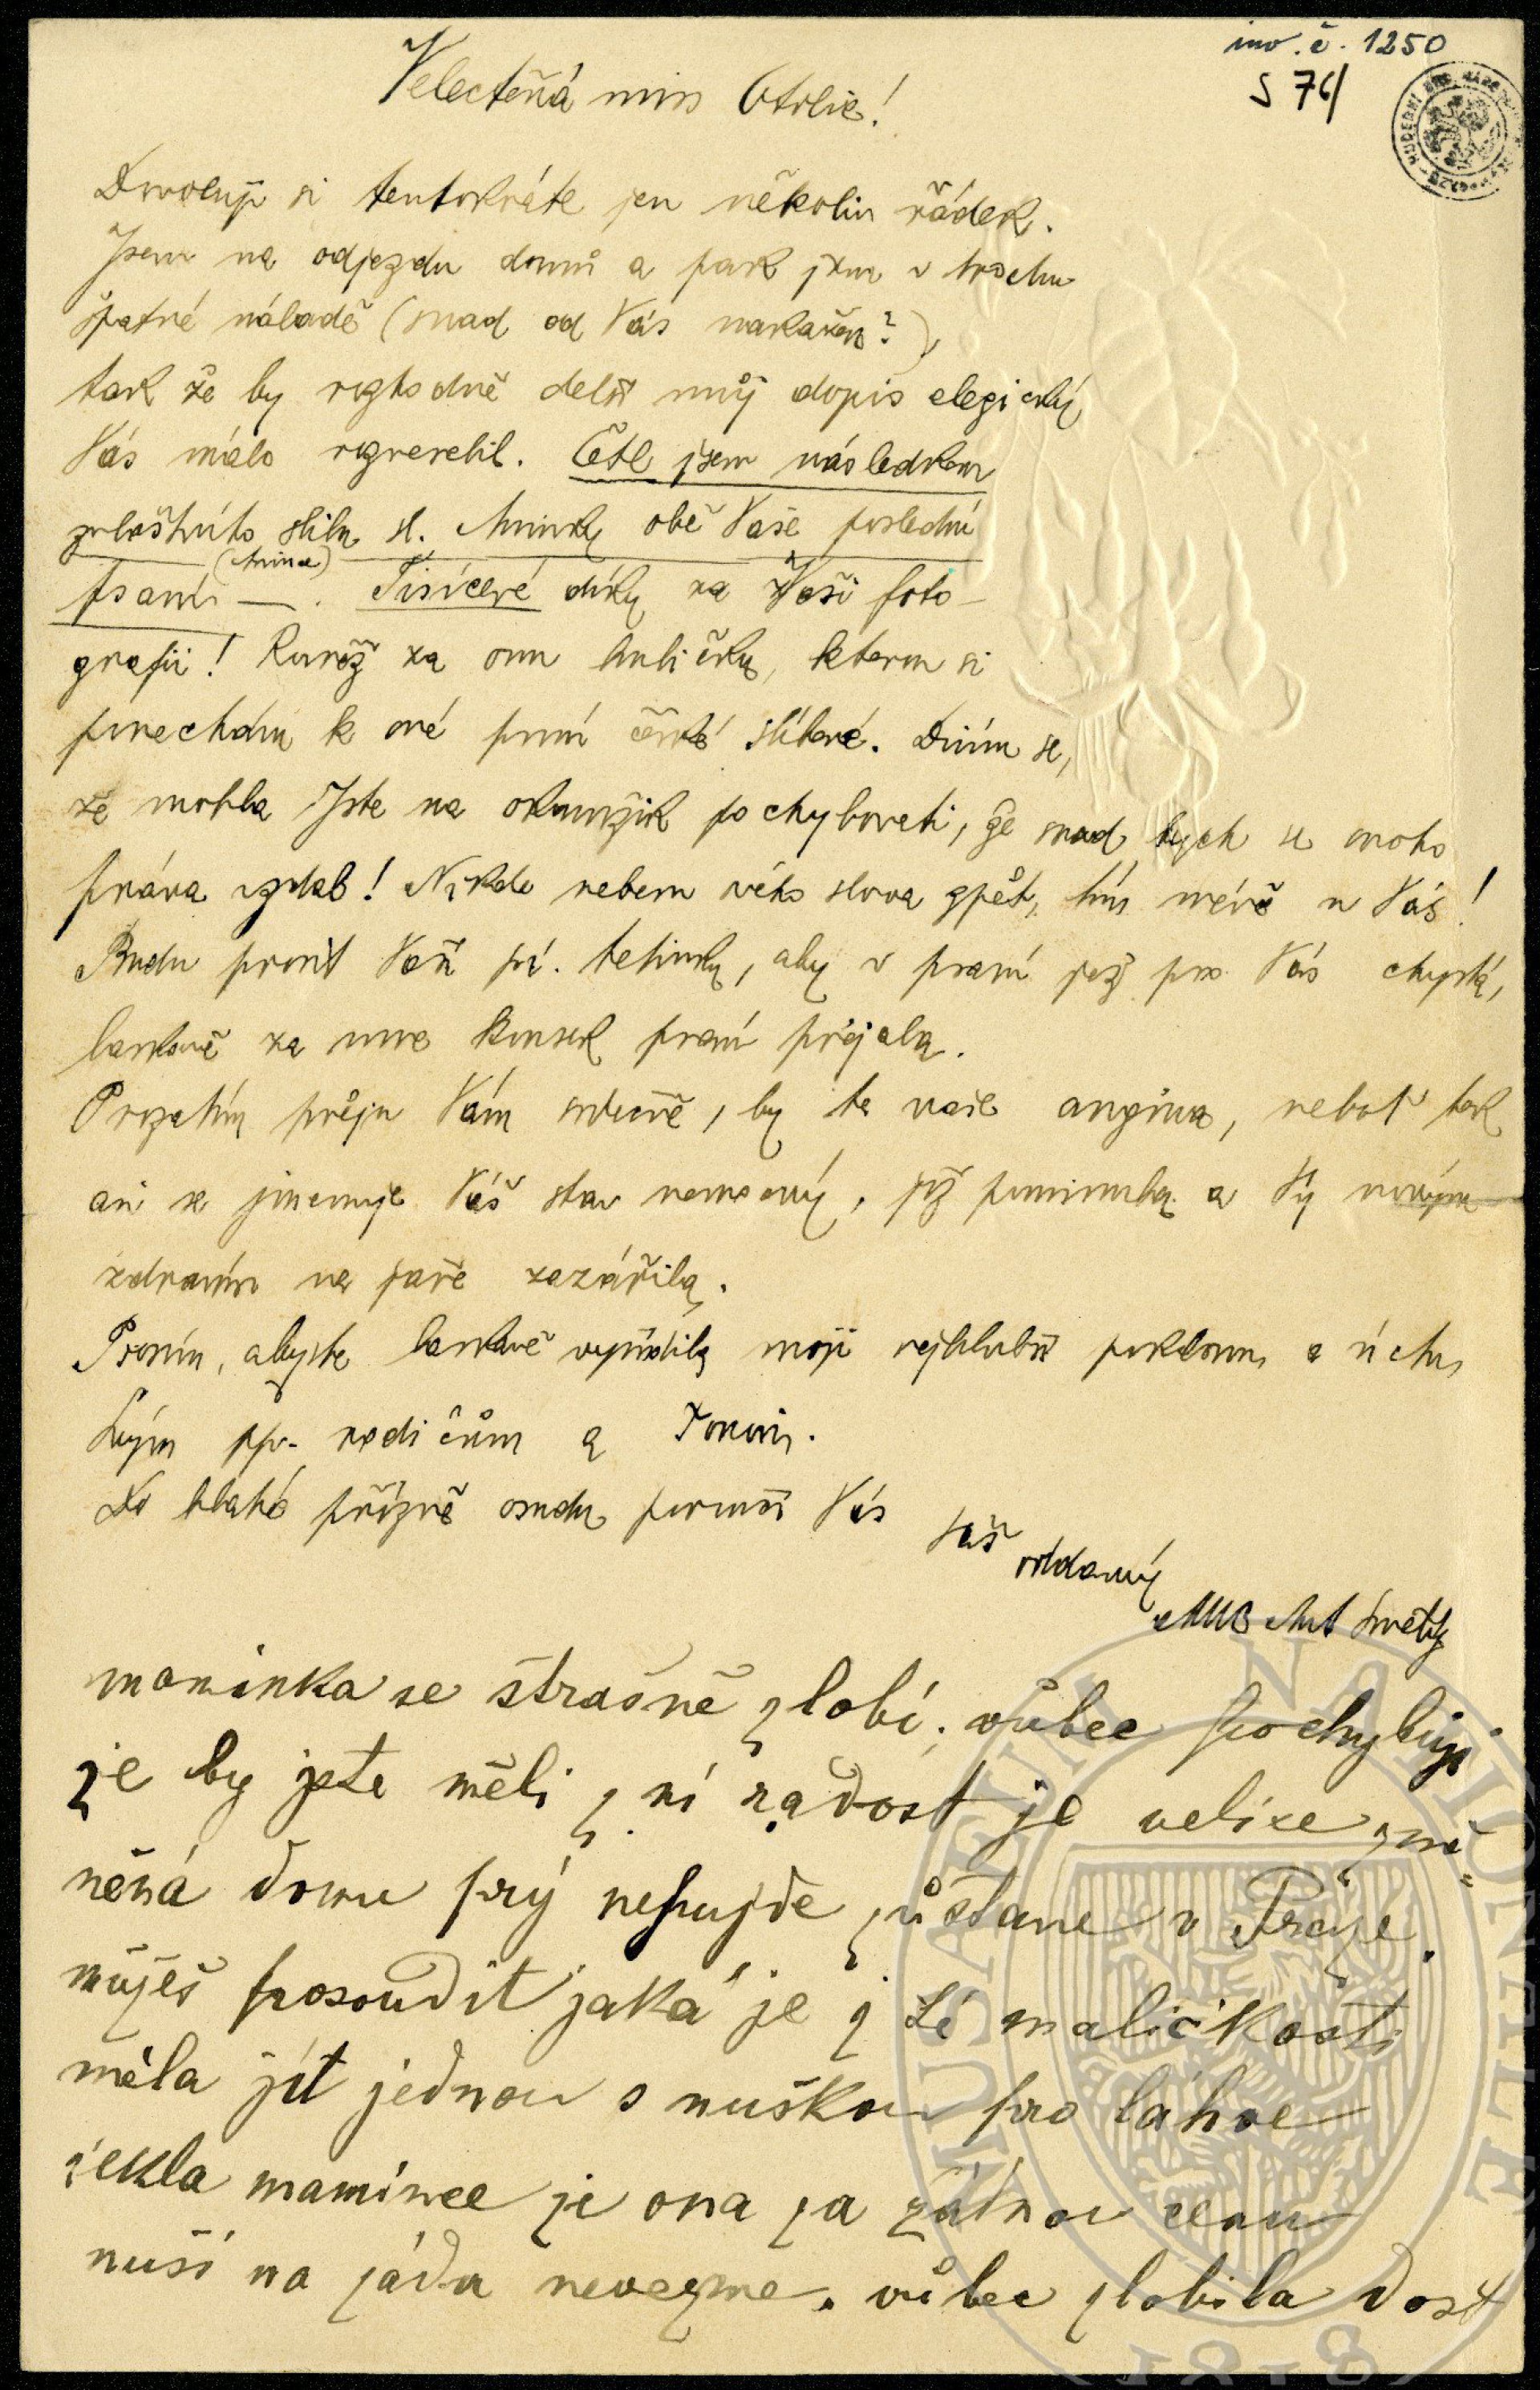 inv. č. 1250
S 76/
Velectěná miss Otilie!
Dovoluji si tentokráte jen několik řádek.
Jsem na odjezdu domů a pak jsem v trochu
špatné náladě (snad od Vás nakažen?),
tak že by rozhodně delší můj dopis elegický
Vás málo
Četl jsem následkem
zvláštního slibu sl. Aninky obě Vaše poslední
psaní (Anina) —. Tisíceré díky za Vaši foto-
grafii! Rovněž za onu hubičku, kterou si
ponechám k oné první slíbené. Divím se,
že mohla Jste na okamžik pochybovati, že snad bych se svoho
práva vzdal! Nikde neberu svého slova zpět, tím méně u Vás!
Budu prosit Vaši tetinku, aby v psaní jež pro Vás chystá,
laskavě za mne kousek psaní přijala.
Prozatím přeju Vám srdečně, by ta vaše angina, neboť tak
asi se jmenuje Váš stav nemocný, již pominula a Vy novým
zdravím na jaře zazářila.
Prosím, abyste laskavě vyřídila moji nejhlubší poklonu a úctu
Svým pp. rodičům a
Do blahé přízně osudu poroučí Vás
Váš oddaný
maminka se strašně zlobí; vůbec pochybuji
že by jste měli z ní radost je velice změ=
něná domu prý nepujde zůstane v Praze.
můžeš posoudit jaká je z té maličkosti
měla jít jednou s nuškou pro láhve
řekla mamince že ona za žádnou cenu
nuši na záda nevezme. vůbec zlobila dost
MUSAEUM NATIONALE
1818